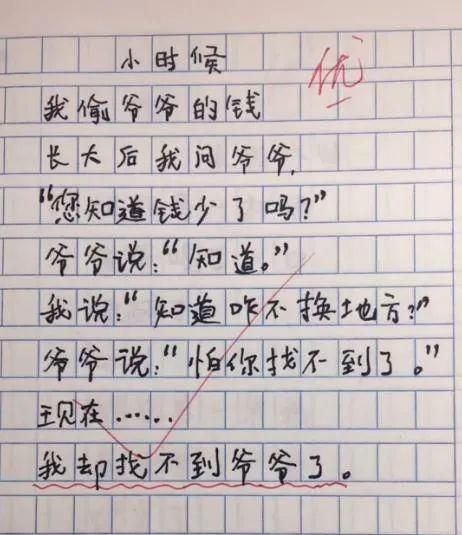 小时候
优
我偷爷爷的钱
长大后我问爷爷,
“您知道钱少了吗?”
爷爷说:“知道。”
我说:“知道咋不换地方?”
爷爷说:“怕你找不到了。”
现在……
我却找不到爷爷了。